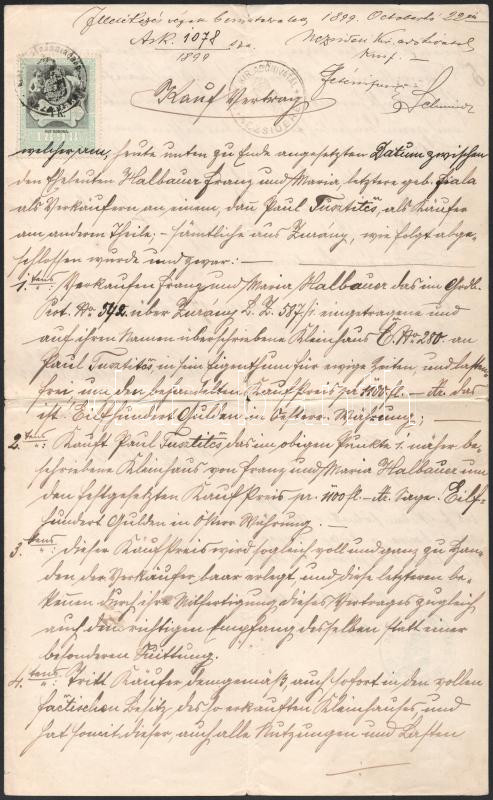 Illetékezés végett bemutattatott 1899. Octoberhó 22én
Ask. 1078 sza.
1899
Nezsider kir. adóhivatal
Schmidt
KIR. ADÓHIVATAL
Kauf Vertrag
welcher am, heute unten zu Ende angesetzten Datum zwischen
den Eheleuten Halbauer Franz und Maria, letztere geb. Fiala
als Verkäufern an einem, dann Paul Tustitës, als Käufer
am anderen Theile, – sämtliche aus Zurány, wie folgt abge-
schlossen wurde und zwar: —
1. tens „: Verkaufen Franz und Maria Halbauer das im Grdb.
Prot. No. 592. über Zurány L. Z. 587/i. eingetragene und
auf ihren Namen überschriebene Kleinhaus C. No 280. an
Paul Tustitës, in sein Eigenthum für ewige Zeiten, und lasten-
frei, um den behandelten Kaufpreis pr. 1100 fl. – kr. das
ist Eilfhundert Gulden in Oesterr. Währung; —
2. tens „: Kauft Paul Tustitës das im obigen Punkte 1. näher be-
schriebene Kleinhaus von Franz und Maria Halbauer um
den festgesetzten Kaufpreis pr. 1100 fl. – kr. Sage: Eilf-
hundert Gulden in Östrr Währung. —
3. tens „: dieser Kaufpreis wird sogleich voll und ganz zu Han-
den der Verkäufer, baar erlegt, und diese letzteren be-
kennen durch ihre Mitfertigung dieses Vertrages zugleich
auch den richtigen Empfang desselben statt einer
besonderen Quittung.
4. tens „: Tritt Käufer demgemäß, auch sofort in den vollen
factischen Besitz, des so erkauften Kleinhauses, und
hat somit dieser, auch alle Nutzungen und Lasten